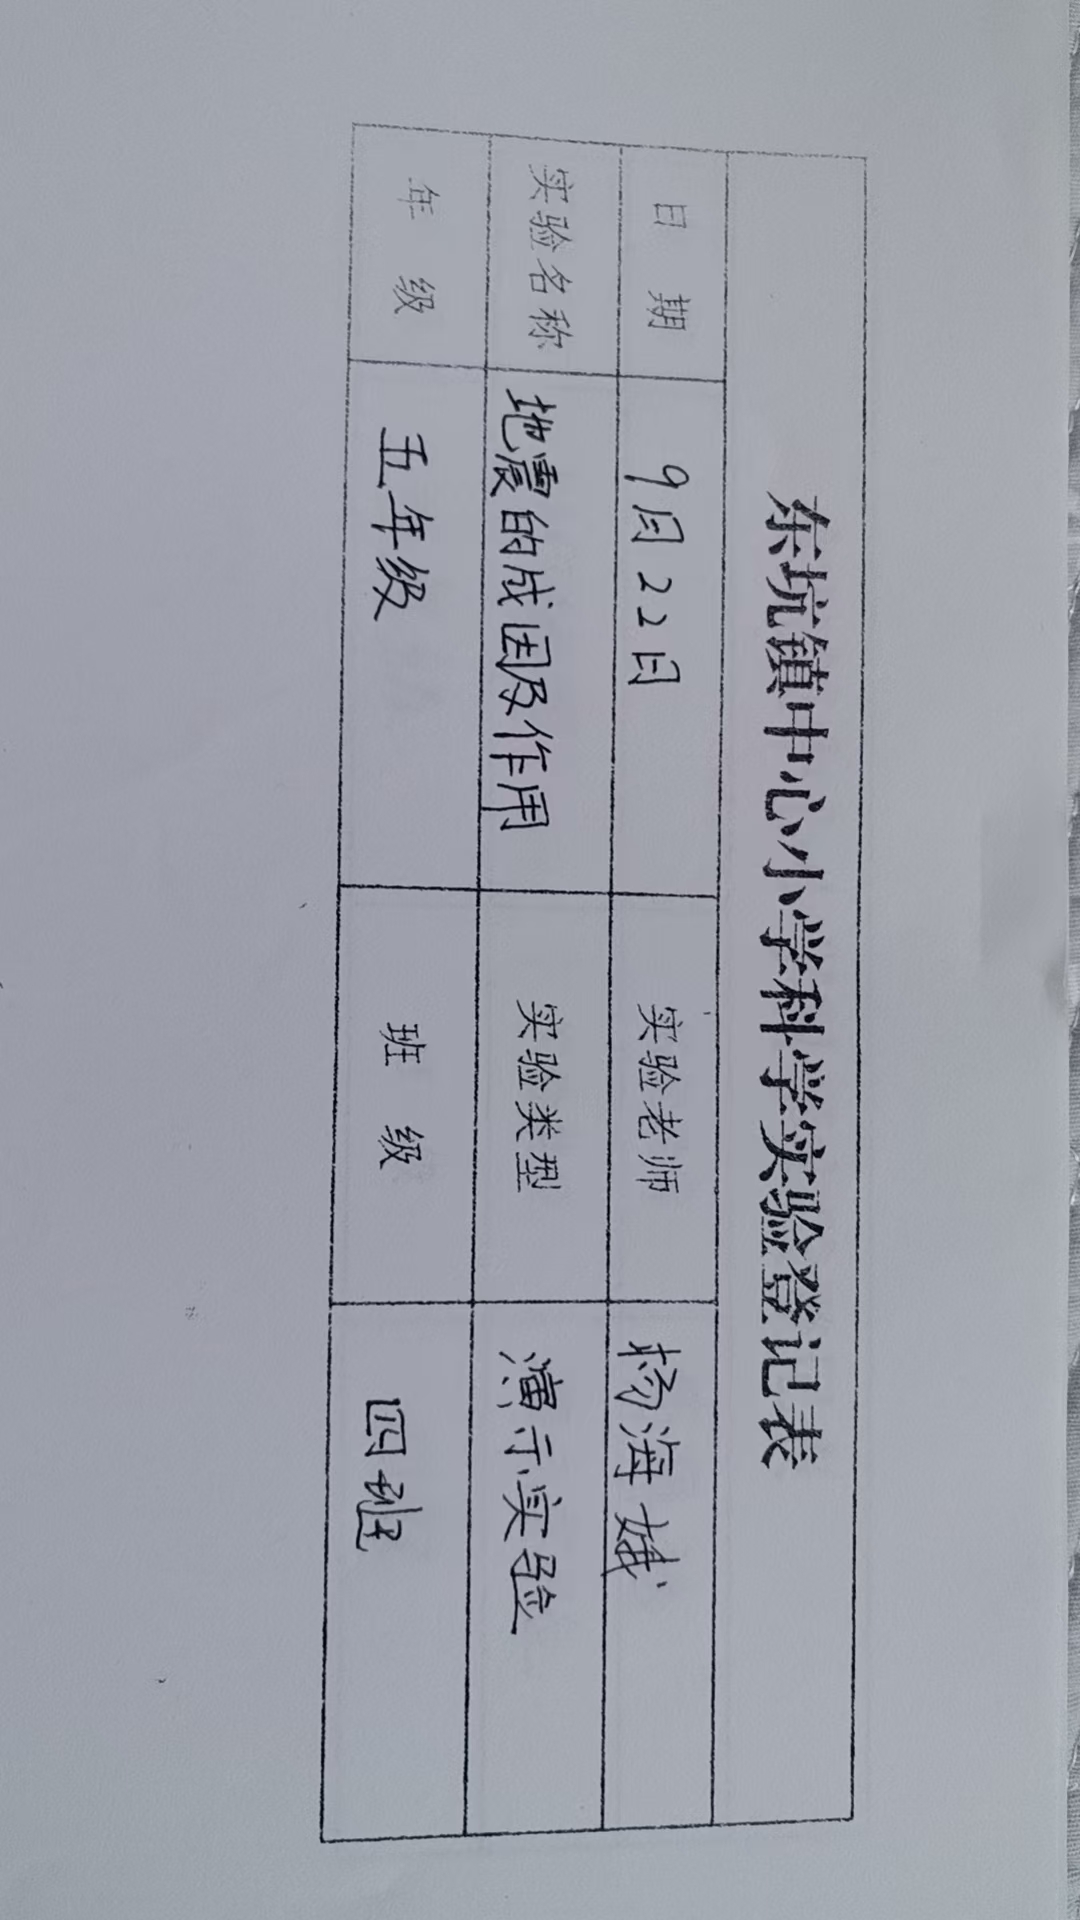 东坑镇中心小学科学实验登记表
日 期 9月22日 实验老师 杨海娥
实验名称 地震的成因及作用 实验类型 演示实验
年 级 五年级 班 级 四班